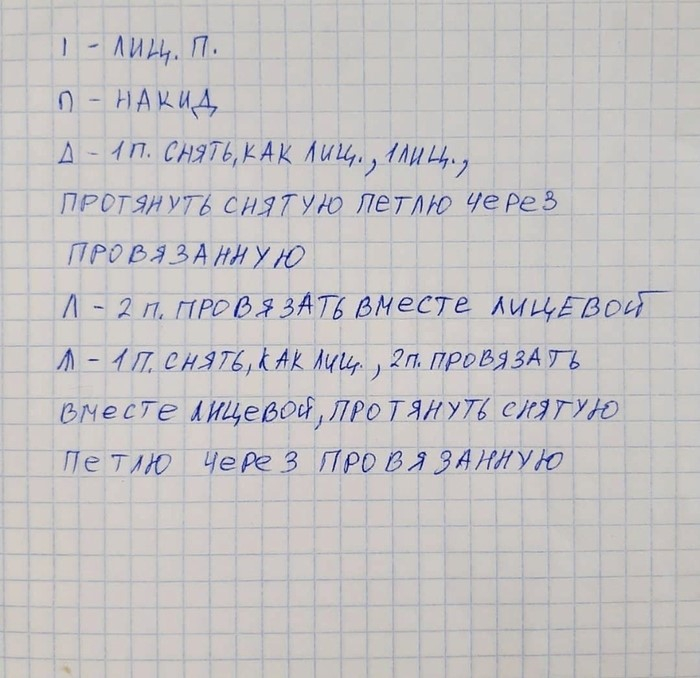 I - ЛИЦ. П.
∩ - НАКИД
Δ - 1 П. СНЯТЬ, КАК ЛИЦ., 1 ЛИЦ.,
ПРОТЯНУТЬ СНЯТУЮ ПЕТЛЮ ЧЕРЕЗ
ПРОВЯЗАННУЮ
Λ - 2 П. ПРОВЯЗАТЬ ВМЕСТЕ ЛИЦЕВОЙ
Λ - 1 П. СНЯТЬ, КАК ЛИЦ., 2 П. ПРОВЯЗАТЬ
ВМЕСТЕ ЛИЦЕВОЙ, ПРОТЯНУТЬ СНЯТУЮ
ПЕТЛЮ ЧЕРЕЗ ПРОВЯЗАННУЮ